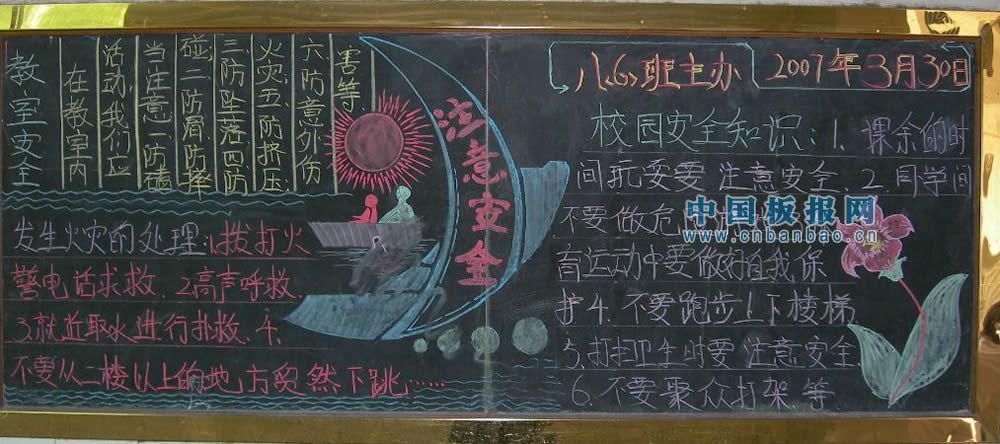 教室安全
在教室内
活动,我们应
当注意一防磕
碰二防滑、防摔
三防坠落四防
火灾、五、防挤压、
六、防意外伤
害等
注意安全
发生火灾的处理:1.拨打火
警电话求救.2.高声呼救.
3.就近取水进行扑救.4.
不要从二楼以上的地方突然下跳……
八<6>班主办
2007年3月30日
校园安全知识:1.课余的时
间玩耍要注意安全.2.同学间
不要做危
育运动中要做好自我保
护4.不要跑步上下楼梯
5.打扫卫生时要注意安全
6.不要聚众打架等
中国板报网
www.cnbanbao.cn